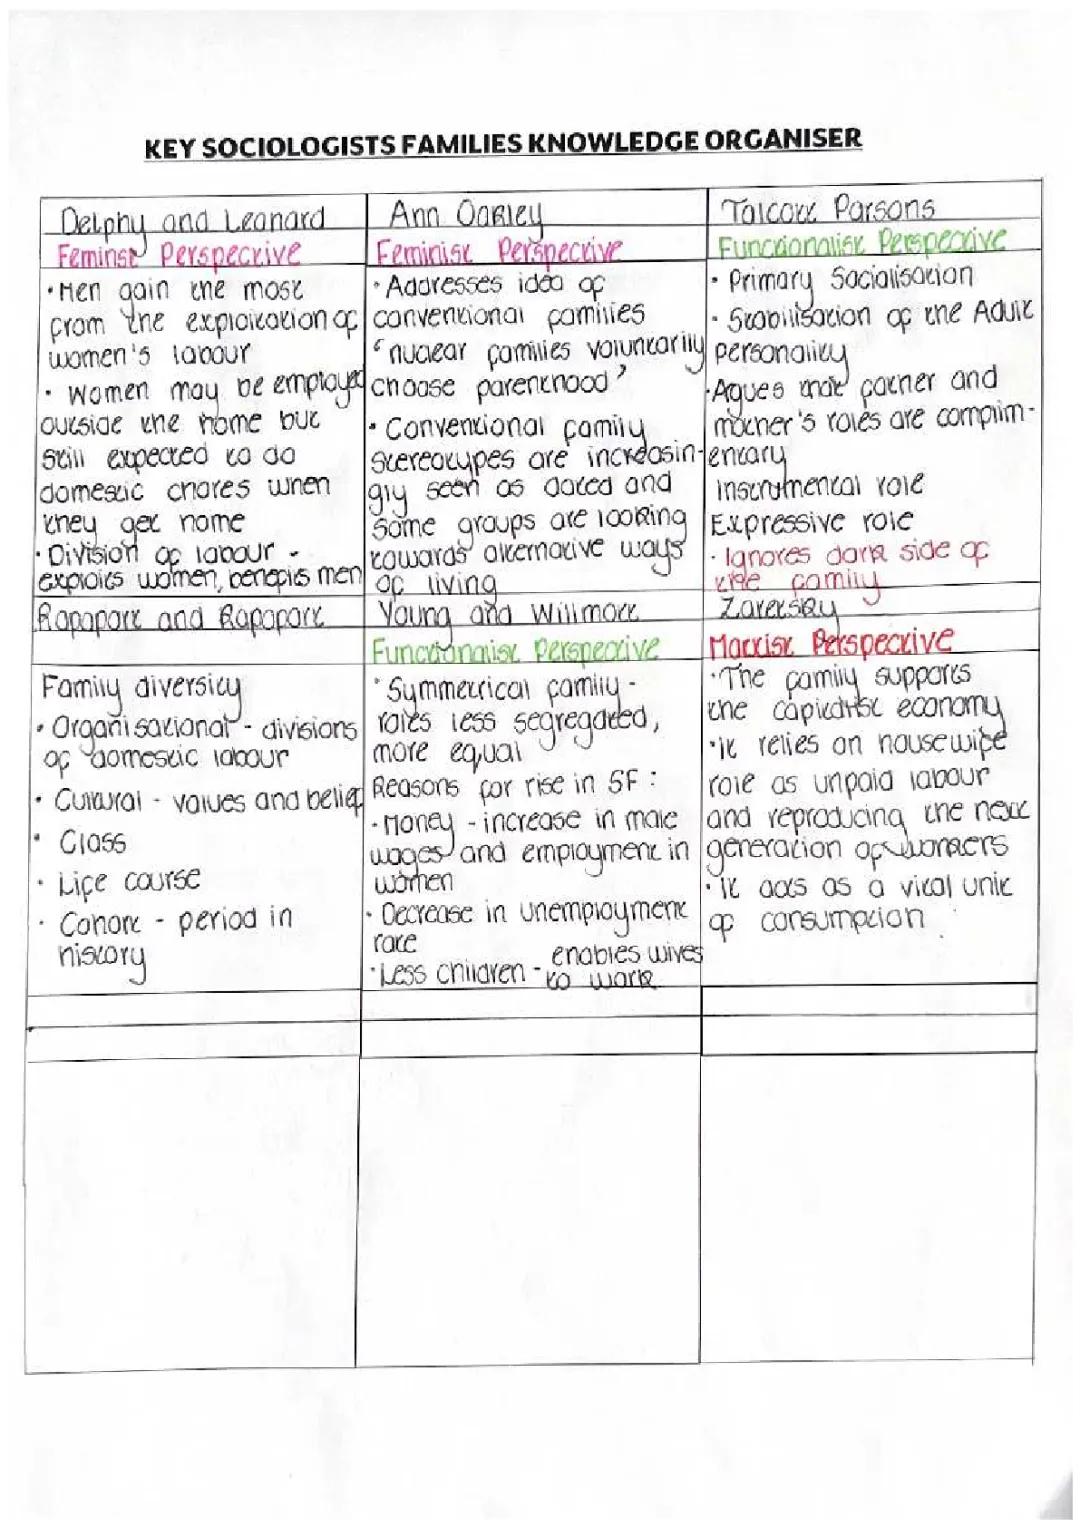 KEY SOCIOLOGISTS FAMILIES KNOWLEDGE ORGANISER
Delphy and Leonard
Feminst Perspective
• Men gain the most
from the exploitation of
women's labour
• Women may be employed
outside the home but
still expected to do
domestic chores when
they get home
• Division of labour -
exploits women, benefits men
Ann Oakley
Feminist Perspective
• Addresses idea of
conventional families
'nuclear families voluntarily
choose parenthood'
• Conventional family
stereotypes are increasin-
gly seen as dated and
some groups are looking
towards alternative ways
of living
Talcott Parsons
Functionalist Perspective
• Primary Socialisation
• Stabilisation of the Adult
personality
• Agues that father and
mother's roles are complim-
entary
Instrumental role
Expressive role
• Ignores dark side of
the family
Rapaport and Rapaport
Family diversity
• Organisational - divisions
of domestic labour
• Cultural - values and belief
• Class
• Life course
• Cohort - period in
history
Young and Willmott
Functionalist Perspective
• Symmetrical family -
roles less segregated,
more equal
Reasons for rise in SF :
• Money - increase in male
wages and employment in
women
• Decrease in unemployment
rate
• Less children - enables wives
to work
Zaretsky
Marxist Perspective
• The family supports
the capitalist economy
• it relies on housewife
role as unpaid labour
and reproducing the next
generation of workers
• it acts as a vital unit
of consumption